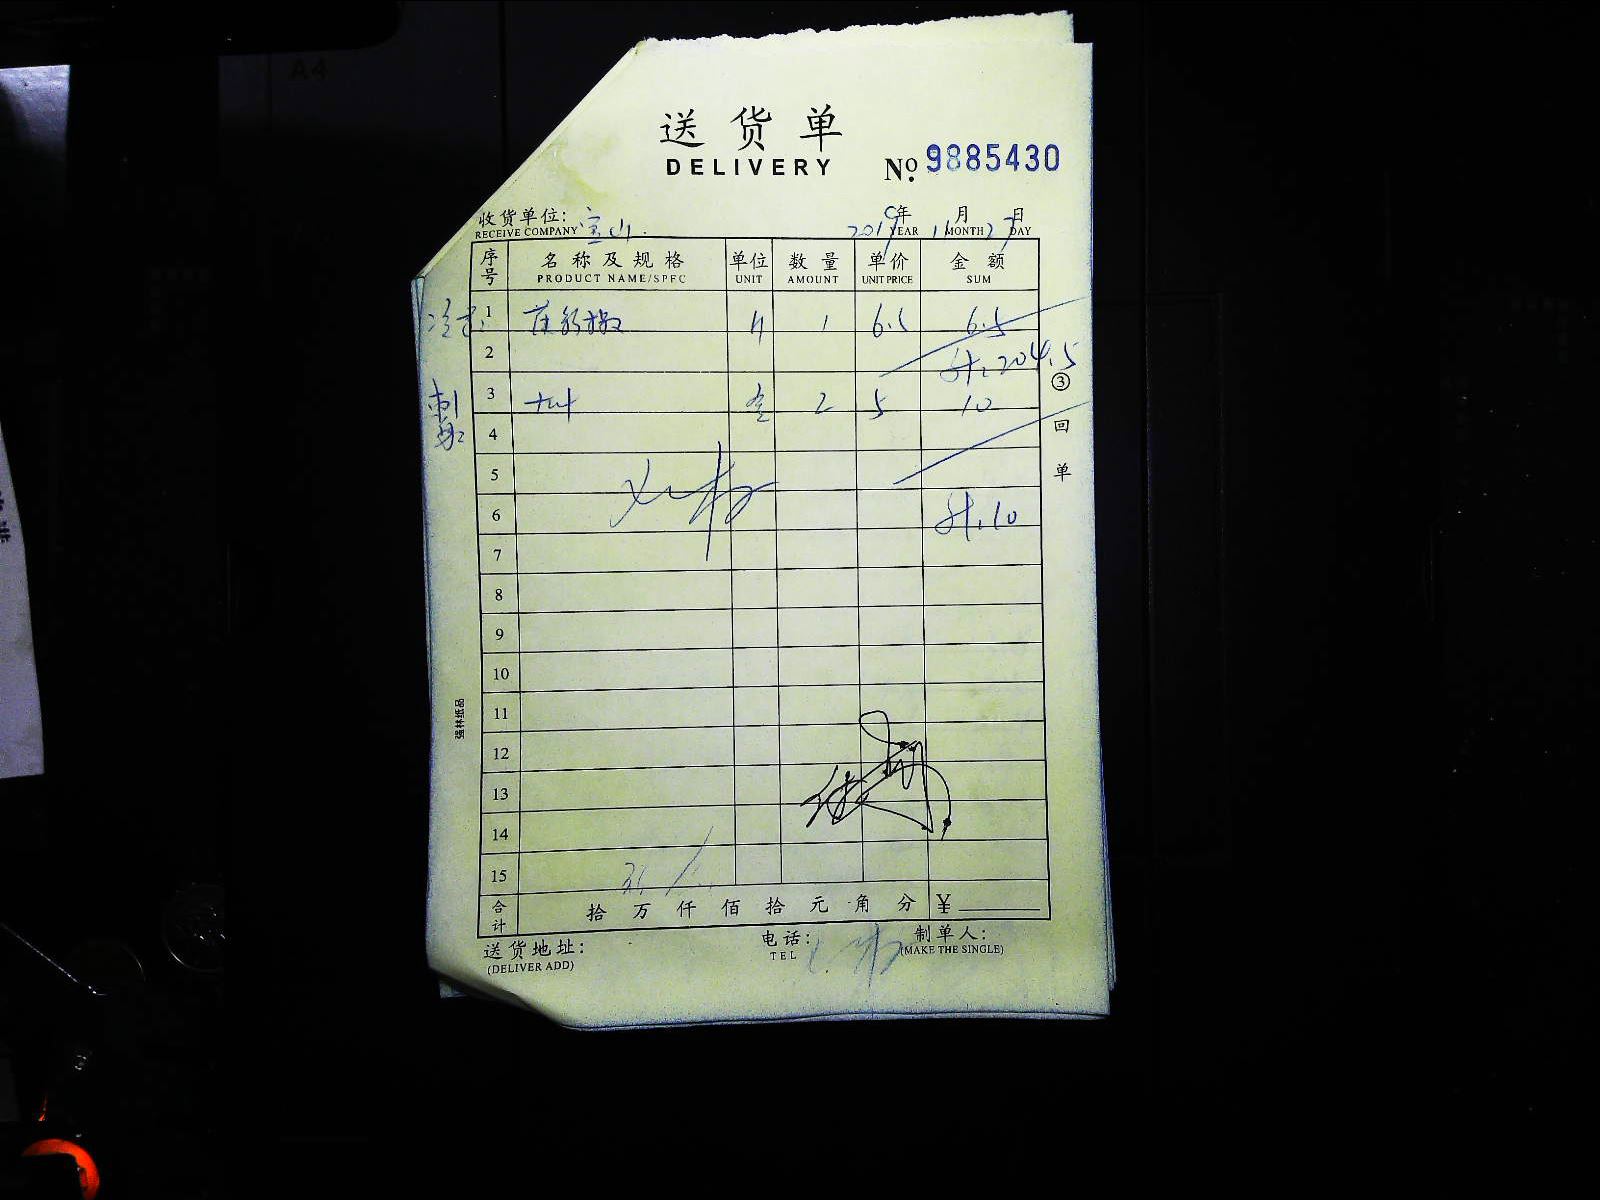 A4
送货单
DELIVERY
№ 9885430
收货单位: 宝山.
RECEIVE COMPANY
2019年 11月 27日
YEAR MONTH DAY
序号 名称及规格 单位 数量 单价 金额
PRODUCT NAME/SPFC UNIT AMOUNT UNIT PRICE SUM
1 斤 1 6.5 6.5
2 计:204.5
3 2 5 10
4
5
6 计:10
7
8
9
10
11
12
13
14
15
合计 拾 万 仟 佰 拾 元 角 分 ¥
③回单
强林纸品
送货地址: 电话: 制单人:
(DELIVER ADD) TEL (MAKE THE SINGLE)